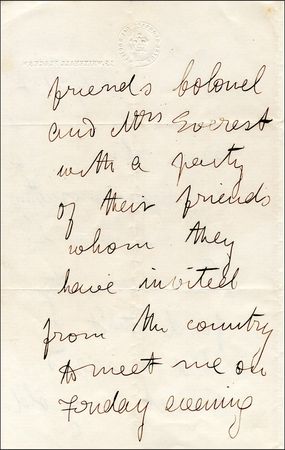 friends Colonel
and Mrs Everest
with a party
of their friends
whom they
have invited
from the country
to meet me on
Friday evening